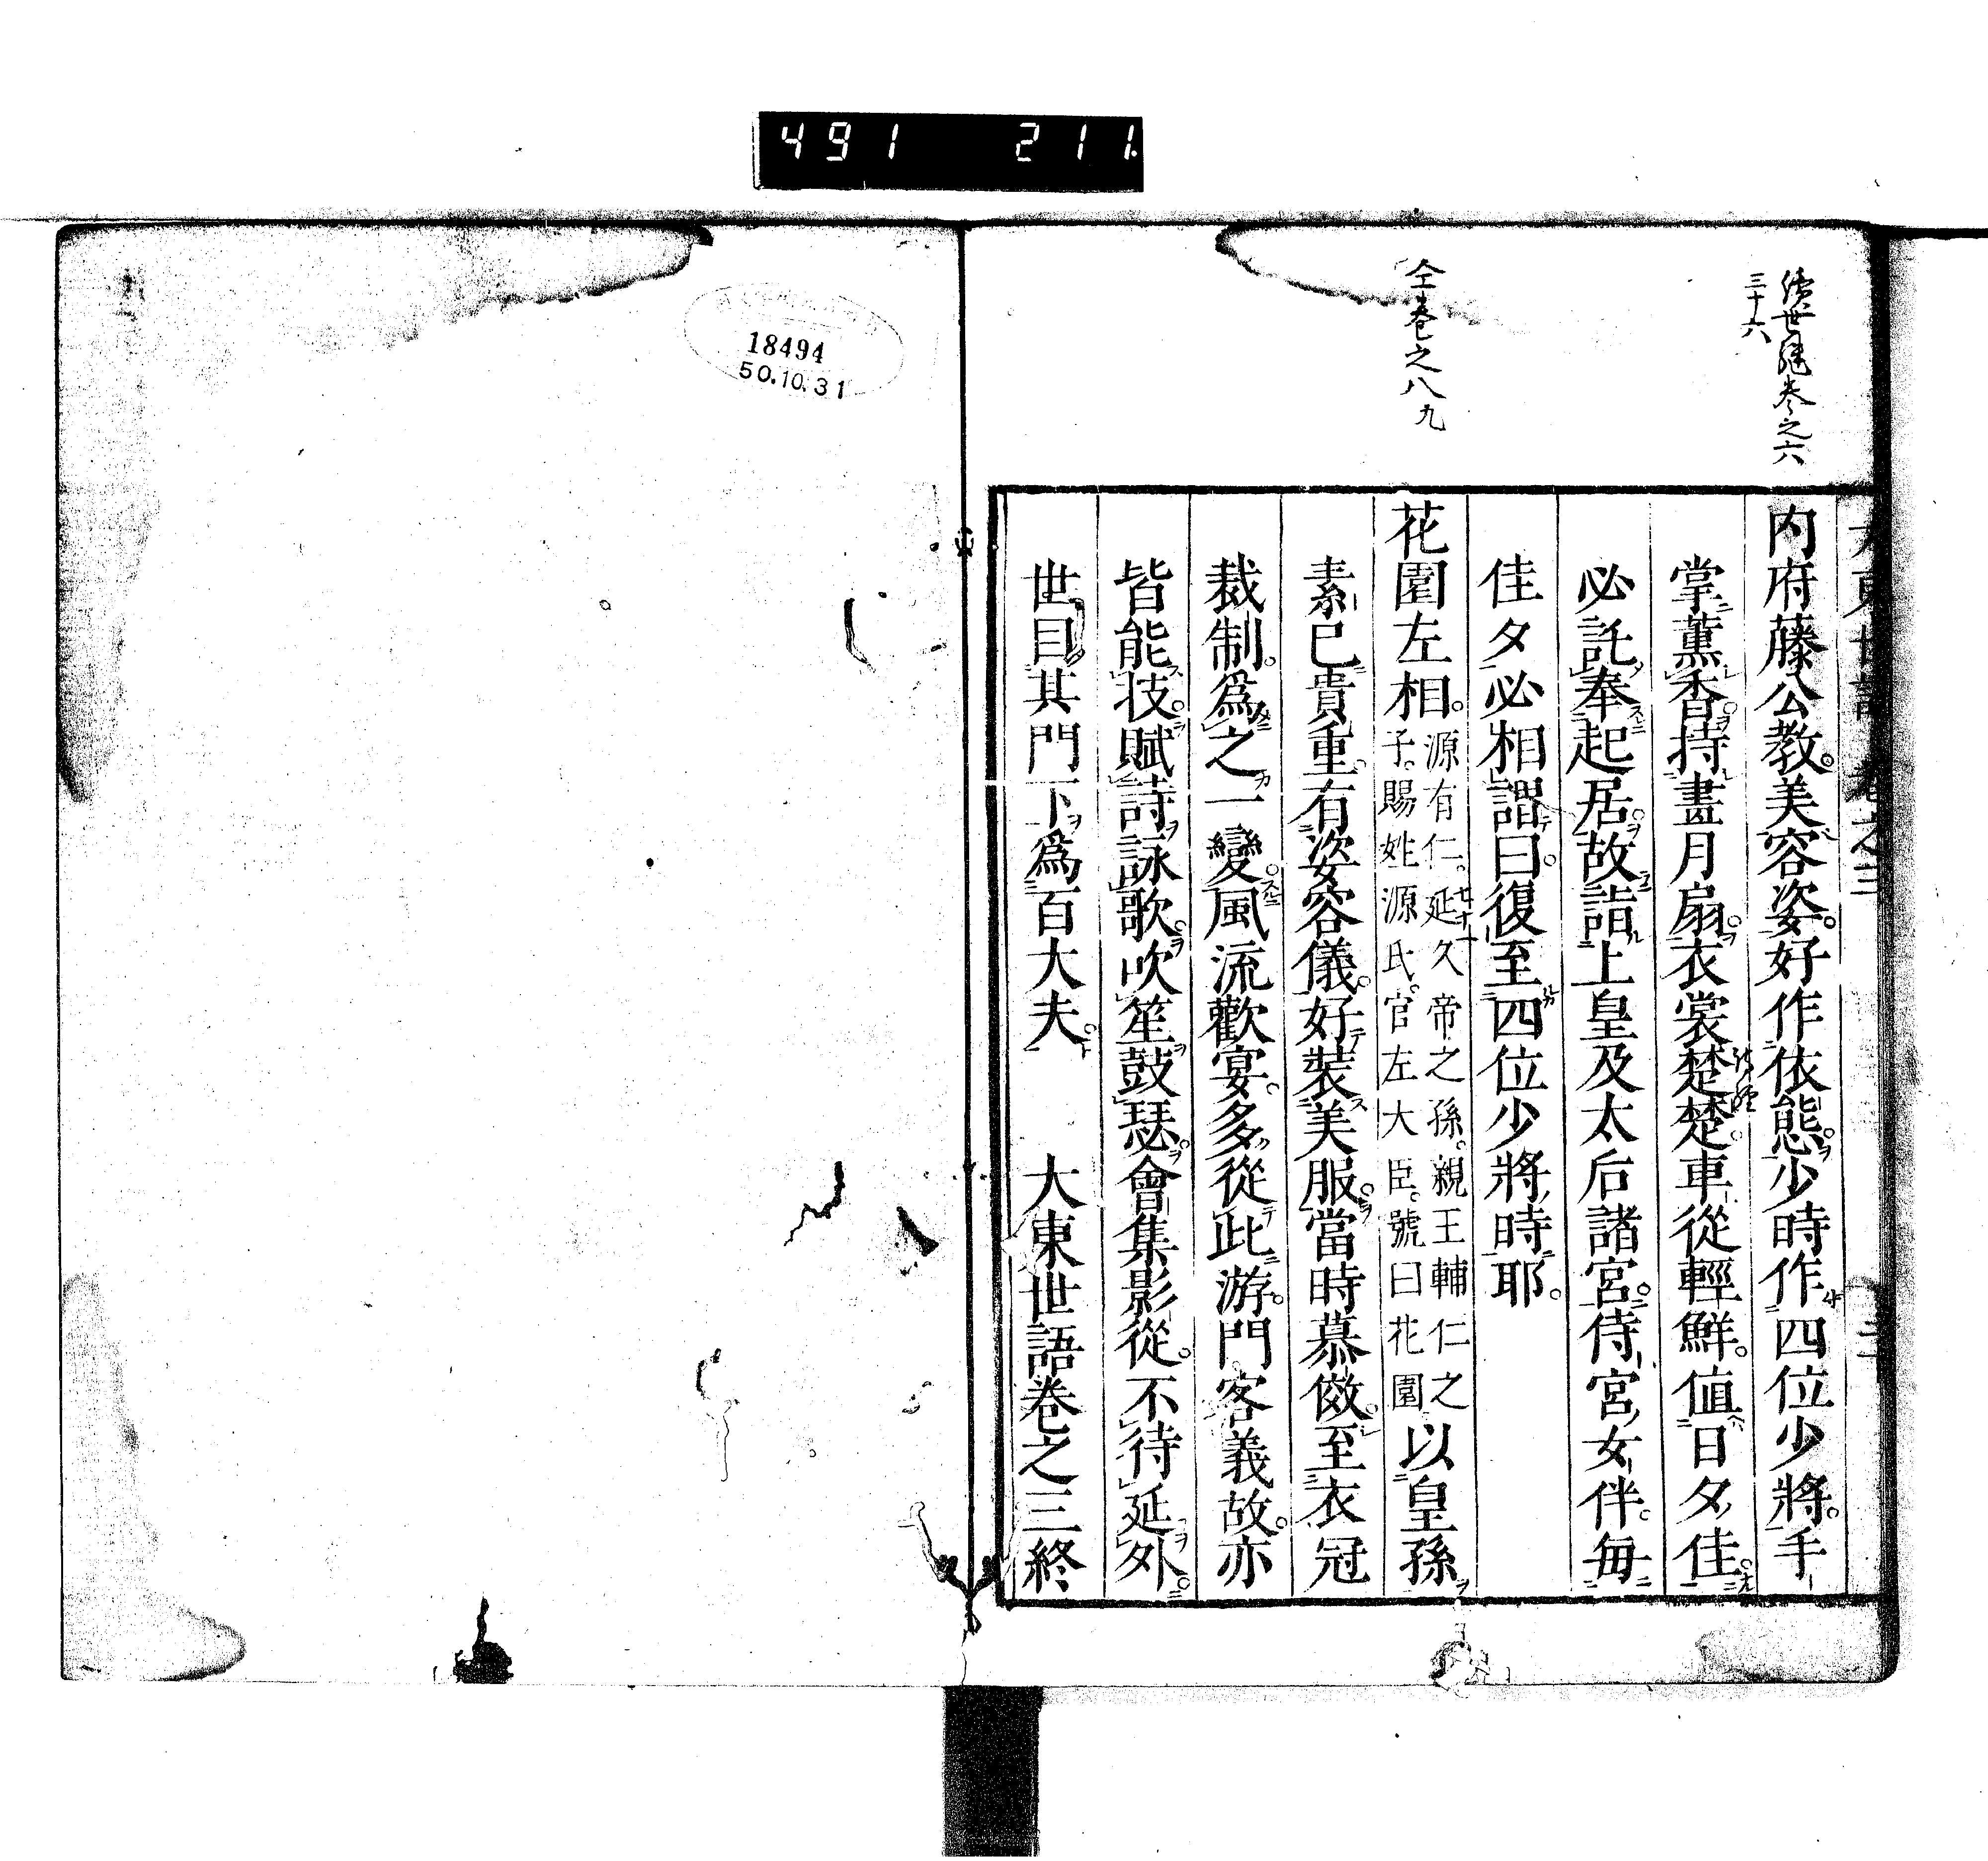 491 211
續世継巻之六
三十六
仝巻之八九
内府藤公教。美容姿。好作依態。少時作四位少將。手
掌薫香。持畫月扇。衣裳楚楚。車從輕鮮。値日夕佳。
必託奉起居。故詣上皇及太后諸宮。侍宮女伴。毎
佳夕必相謂曰。復至四位少將時耶。
花園左相。源有仁。延久帝之孫。親王輔仁之子。賜姓源氏。官左大臣。號曰花園以皇孫
素已貴重。有姿容儀。好裝美服。當時慕傚。至衣冠
裁制。爲之一變。風流歡宴。多從此游。門客義故。亦
皆能技。賦詩詠歌。吹笙鼓瑟。會集影從。不待延外。
世目其門下爲百大夫。 大東世語巻之三終
18494
50.10.31